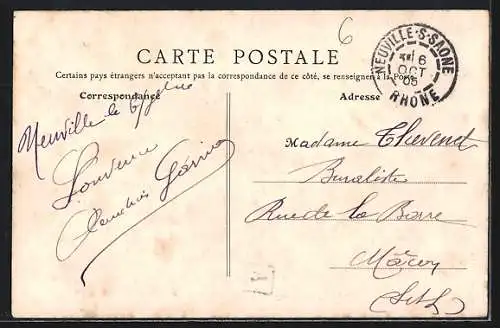 6
CARTE POSTALE
Certains pays étrangers n'acceptant pas la correspondance de ce côté, se renseigner à la Poste
NEUVILLE-S-SAONE
6
OCT
05
RHONE
Correspondance
Adresse
Neuville le 6/
Souvenir
Madame Thevenet
Buraliste
Rue de la Barre
Mâcon
(S&L)